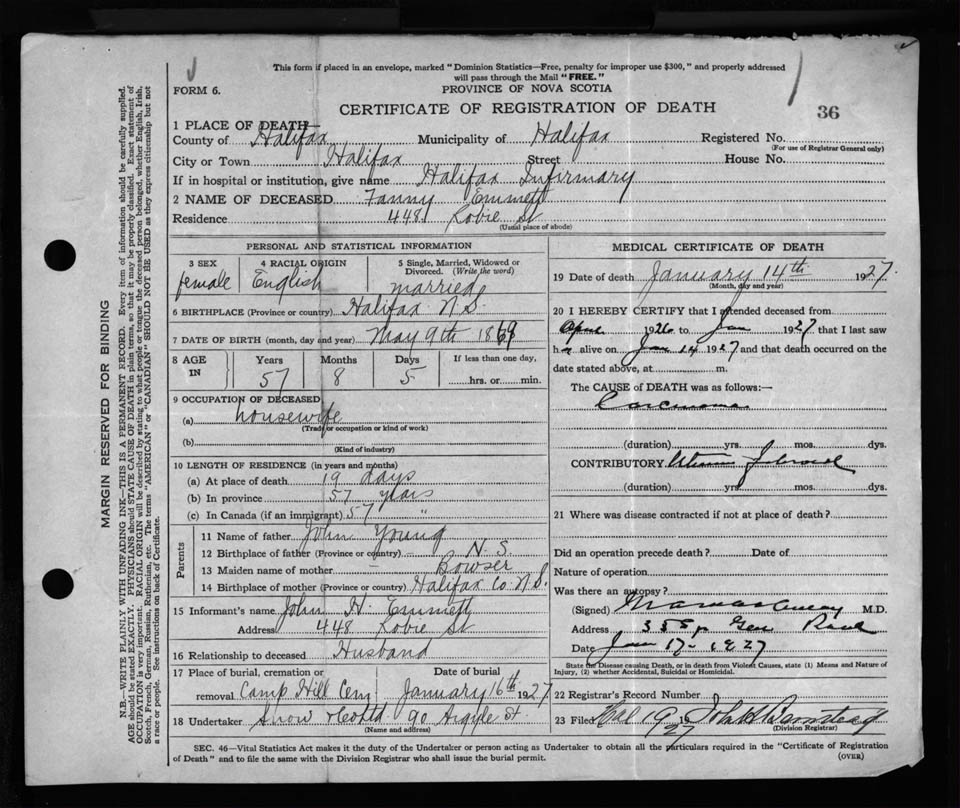 This form if placed in an envelope, marked "Dominion Statistics—Free, penalty for improper use $300," and properly addressed
will pass through the Mail "FREE."
FORM 6.
PROVINCE OF NOVA SCOTIA
CERTIFICATE OF REGISTRATION OF DEATH
36
1 PLACE OF DEATH—
County of Halifax Municipality of Halifax Registered No.
(For use of Registrar General only)
City or Town Halifax Street House No.
If in hospital or institution, give name Halifax Infirmary
2 NAME OF DECEASED Fanny Emmett
Residence 448 Robie St
(Usual place of abode)
MARGIN RESERVED FOR BINDING
N.B.—WRITE PLAINLY WITH UNFADING INK—THIS IS A PERMANENT RECORD. Every item of information should be carefully supplied.
AGE should be stated EXACTLY. PHYSICIANS should STATE CAUSE OF DEATH in plain terms, so that it may be properly classified. Exact statement of
OCCUPATION is very important. RACIAL ORIGIN will be described by stating to what people or tongue the deceased person belonged, whether English, Irish,
Scotch, French, German, Russian, Ruthenian, etc. The terms "AMERICAN" or "CANADIAN" SHOULD NOT BE USED as they express citizenship but not
a race or people. See instructions on back of Certificate.
PERSONAL AND STATISTICAL INFORMATION
3 SEX
female
4 RACIAL ORIGIN
English
5 Single, Married, Widowed or
Divorced. (Write the word)
married
6 BIRTHPLACE (Province or country) Halifax N.S.
7 DATE OF BIRTH (month, day and year) May 9th 1869
8 AGE IN
Years Months Days If less than one day,
57 8 5 hrs. or min.
9 OCCUPATION OF DECEASED
(a) housewife
(Trade or occupation or kind of work)
(b)
(Kind of industry)
10 LENGTH OF RESIDENCE (in years and months)
(a) At place of death 19 days
(b) In province 57 years
(c) In Canada (if an immigrant) 57 "
Parents
11 Name of father John Young
12 Birthplace of father (Province or country) N.S.
13 Maiden name of mother Bowser
14 Birthplace of mother (Province or country) Halifax Co. N.S.
15 Informant's name John H. Emmett
Address 448 Robie St
16 Relationship to deceased Husband
17 Place of burial, cremation or Date of burial
removal Camp Hill Cem January 16th 1927
18 Undertaker Snow & Co Ltd. 90 Argyle St.
(Name and address)
MEDICAL CERTIFICATE OF DEATH
19 Date of death January 14th 1927.
(Month, day and year)
20 I HEREBY CERTIFY that I attended deceased from
April 1926 to Jan 1927 that I last saw
her alive on Jan 14 1927 and that death occurred on the
date stated above, at m.
The CAUSE of DEATH was as follows:—
Carcinoma
(duration) yrs. mos. dys.
CONTRIBUTORY Uterine
(duration) yrs. mos. dys.
21 Where was disease contracted if not at place of death?
Did an operation precede death? Date of
Nature of operation
Was there an autopsy?
(Signed) M.D.
Address
Date Jan 17 - 1927
State the Disease causing Death, or in death from Violent Causes, state (1) Means and Nature of
Injury, (2) whether Accidental, Suicidal or Homicidal.
22 Registrar's Record Number
23 Filed 19 27
(Division Registrar)
SEC. 46—Vital Statistics Act makes it the duty of the Undertaker or person acting as Undertaker to obtain all the particulars required in the "Certificate of Registration
of Death" and to file the same with the Division Registrar who shall issue the burial permit.
(OVER)